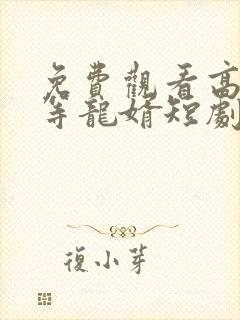 免費觀看高
等龍婿短劇
復小芽